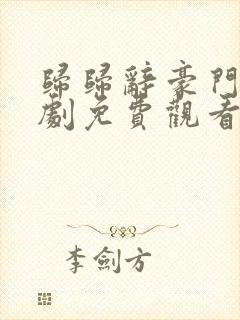 歸歸辭豪門
劇免費觀看
李劍方